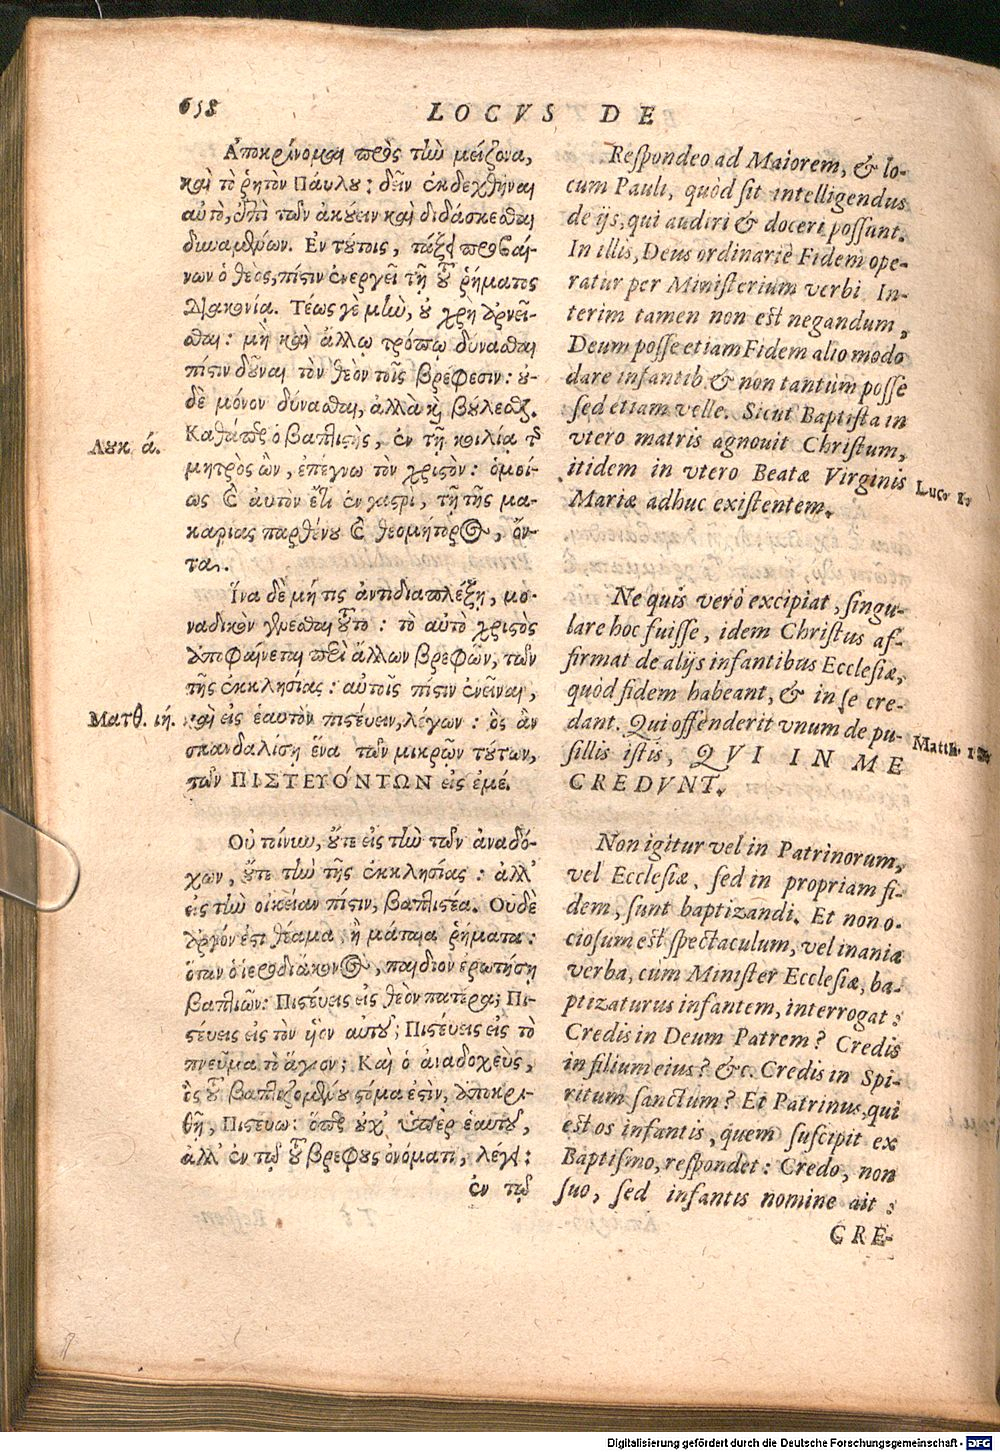 658
LOCVS DE
Ἀποκρίνομαι πρὸς τὴν μείζονα,
καὶ τὸ ῥητὸν Παύλου: δεῖν ἐκδεχθῆναι
αὐτὸ, ἐπὶ τῶν ἀκούειν καὶ διδάσκεσθαι
δυναμένων. Ἐν τούτοις, τάξει προβαί-
νων ὁ θεὸς, πίστιν ἐνεργεῖ τῇ τοῦ ῥήματος
διακονίᾳ. Τέως γε μὴν, οὐ χρὴ ἀρνεῖ-
σθαι: μὴ καὶ ἄλλῳ τρόπῳ δύνασθαι
πίστιν δοῦναι τὸν θεὸν τοῖς βρέφεσιν: οὐ-
δὲ μόνον δύνασθαι, ἀλλὰ καὶ βούλεσθαι.
Λουκ. ά.
Καθάπερ ὁ βαπτιστὴς, ἐν τῇ κοιλίᾳ τῆς
μητρὸς ὢν, ἐπέγνω τὸν χριστὸν: ὁμοί-
ως καὶ αὐτὸν ἔτι ἐν γαστρὶ, τῇ τῆς μα-
καρίας παρθένου καὶ θεομήτορος, ὄν-
τα.
Ἵνα δὲ μή τις ἀντιδιαπλέξῃ, μο-
ναδικὸν γενέσθαι τοῦτο: τὸ αὐτὸ χριστὸς
ἀποφαίνεται περὶ ἄλλων βρεφῶν, τῶν
τῆς ἐκκλησίας: αὐτοῖς πίστιν ἐνεῖναι,
Ματθ. ιή.
καὶ εἰς ἑαυτὸν πιστεύειν, λέγων: ὃς ἂν
σκανδαλίσῃ ἕνα τῶν μικρῶν τούτων,
τῶν ΠΙΣΤΕΥΌΝΤΩΝ εἰς ἐμέ.
Οὐ τοίνυν, οὔτε εἰς τὴν τῶν ἀναδό-
χων, οὔτε τὴν τῆς ἐκκλησίας: ἀλλ'
εἰς τὴν οἰκείαν πίστιν, βαπτιστέα. Οὐδὲ
ἀργόν ἐστι θέαμα, ἢ μάταια ῥήματα:
ὅταν ὁ ἱεροδιάκονος, παιδίον ἐρωτήσῃ
βαπτιῶν: Πιστεύεις εἰς θεὸν πατέρα; Πι-
στεύεις εἰς τὸν υἱὸν αὐτοῦ; Πιστεύεις εἰς τὸ
πνεῦμα τὸ ἅγιον; Καὶ ὁ ἀναδοχεὺς,
ὃς τοῦ βαπτιζομένου στόμα ἐστὶν, ἀποκρι-
θῇ, Πιστεύω: ὅπερ οὐχ' ὑπὲρ ἑαυτοῦ,
ἀλλ' ἐν τῷ τοῦ βρέφους ὀνόματι, λέγει:
ἐν τῷ
Respondeo ad Maiorem, & lo-
cum Pauli, quòd sit intelligendus
de ijs, qui audiri & doceri possunt.
In illis, Deus ordinariè Fidem ope-
ratur per Ministerium verbi. In-
terim tamen non est negandum,
Deum posse etiam Fidem alio modo
dare infantib. & non tantùm posse
sed etiam velle. Sicut Baptista in
vtero matris agnouit Christum,
itidem in vtero Beatæ Virginis
Luc. 1.
Mariæ adhuc existentem.
Ne quis verò excipiat, singu-
lare hoc fuisse, idem Christus af-
firmat de alijs infantibus Ecclesiæ,
quòd fidem habeant, & in se cre-
dant. Qui offenderit vnum de pu-
Matth. 18.
sillis istis, QVI IN ME
CREDVNT.
Non igitur vel in Patrinorum,
vel Ecclesiæ, sed in propriam fi-
dem, sunt baptizandi. Et non o-
ciosum est spectaculum, vel inania
verba, cùm Minister Ecclesiæ, ba-
ptizaturus infantem, interrogat:
Credis in Deum Patrem? Credis
in filium eius? &c. Credis in Spi-
ritum sanctum? Et Patrinus, qui
est os infantis, quem suscipit ex
Baptismo, respondet: Credo, non
suo, sed infantis nomine ait:
CRE-
Digitalisierung gefördert durch die Deutsche Forschungsgemeinschaft - DFG